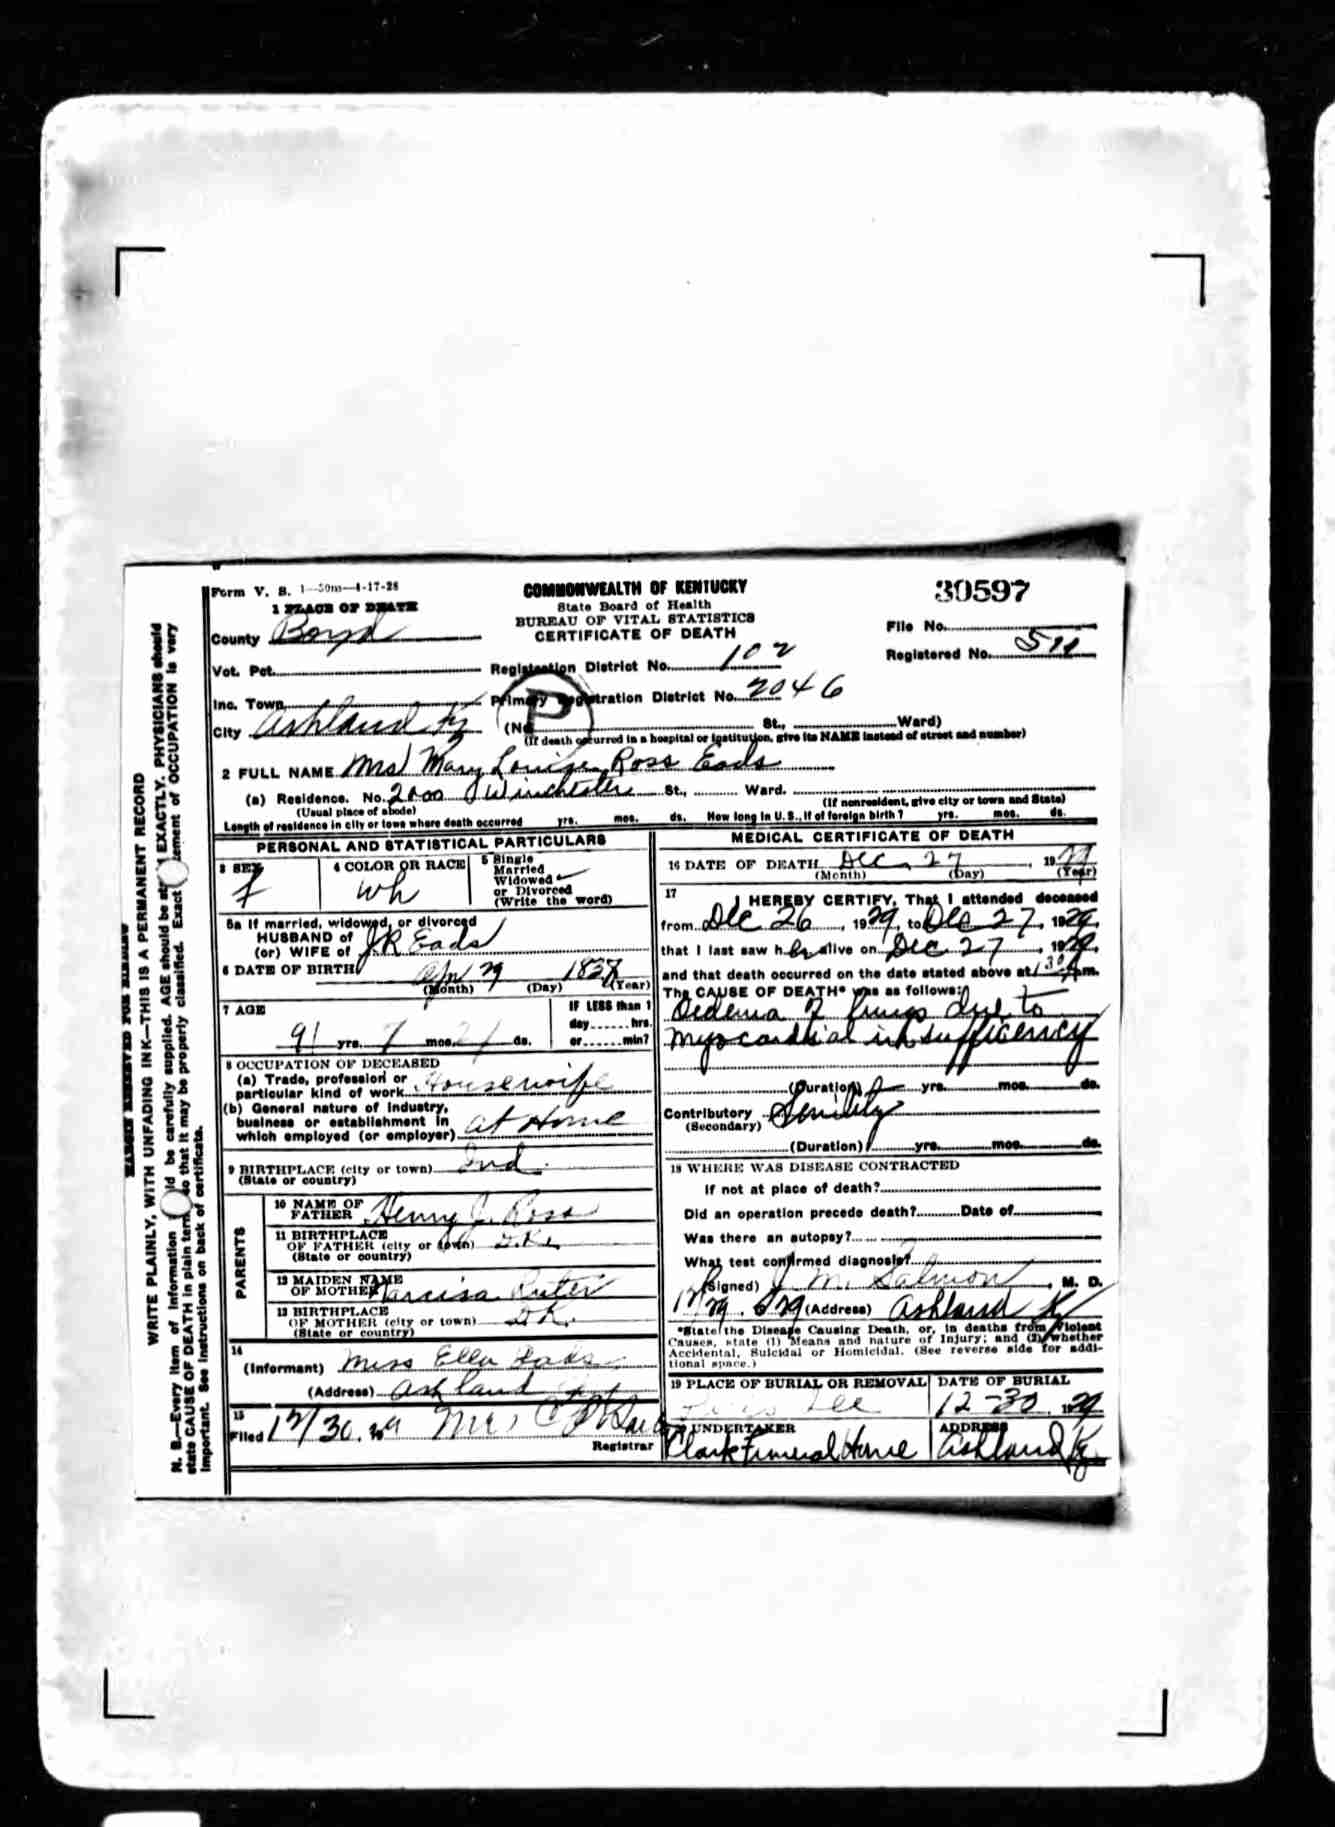 Form V. S. 1—50m—4-17-28
COMMONWEALTH OF KENTUCKY
State Board of Health
BUREAU OF VITAL STATISTICS
CERTIFICATE OF DEATH
30597
1 PLACE OF DEATH
County Boyd
File No.
Registered No. 511
Vot. Pct.
Registration District No. 102
Inc. Town
Primary Registration District No. 2046
P
City Ashland Ky (No. St., Ward)
(If death occurred in a hospital or institution, give its NAME instead of street and number)
2 FULL NAME Mrs Mary Louise Ross Eads
(a) Residence. No. 2000 Winchester St., Ward.
(Usual place of abode) (If nonresident, give city or town and State)
Length of residence in city or town where death occurred yrs. mos. ds. How long in U. S., if of foreign birth? yrs. mos. ds.
PERSONAL AND STATISTICAL PARTICULARS
3 SEX
f
4 COLOR OR RACE
wh
5 Single
Married
Widowed ✓
or Divorced
(Write the word)
5a If married, widowed, or divorced
HUSBAND of
(or) WIFE of J R Eads
6 DATE OF BIRTH
(Month) (Day) (Year)
7 AGE
91 yrs. 7 mos. ds.
IF LESS than 1
day ...... hrs.
or ...... min?
8 OCCUPATION OF DECEASED
(a) Trade, profession or
particular kind of work Housewife
(b) General nature of industry,
business or establishment in
which employed (or employer) at Home
9 BIRTHPLACE (city or town) Ind.
(State or country)
PARENTS
10 NAME OF
FATHER Henry J. Ross
11 BIRTHPLACE
OF FATHER (city or town) D.K.
(State or country)
12 MAIDEN NAME
OF MOTHER Narcissa
13 BIRTHPLACE
OF MOTHER (city or town) D.K.
(State or country)
14
(Informant) Miss Ella Eads
(Address) Ashland
15
Filed 12/30, 29 Mrs
Registrar
MEDICAL CERTIFICATE OF DEATH
16 DATE OF DEATH Dec. 27, 1929
(Month) (Day) (Year)
17
I HEREBY CERTIFY, That I attended deceased
from Dec 26, 1929, to Dec 27, 1929,
that I last saw her alive on Dec 27, 1929,
and that death occurred on the date stated above at 1 30 m.
The CAUSE OF DEATH* was as follows:
Oedema of lungs due to
myocardial insufficiency
(Duration) yrs. mos. ds.
Contributory Senility
(Secondary)
(Duration) yrs. mos. ds.
18 WHERE WAS DISEASE CONTRACTED
If not at place of death?
Did an operation precede death? Date of
Was there an autopsy?
What test confirmed diagnosis?
(Signed) J. M. Salmon, M. D.
12/29, 1929 (Address) Ashland Ky
*State the Disease Causing Death, or, in deaths from Violent
Causes, state (1) Means and nature of Injury; and (2) whether
Accidental, Suicidal or Homicidal. (See reverse side for addi-
tional space.)
19 PLACE OF BURIAL OR REMOVAL
DATE OF BURIAL
12-30, 1929
20 UNDERTAKER
Clark Funeral Home
ADDRESS
Ashland Ky
MARGIN RESERVED FOR BINDING
WRITE PLAINLY, WITH UNFADING INK—THIS IS A PERMANENT RECORD
N. B.—Every item of information should be carefully supplied. AGE should be stated EXACTLY. PHYSICIANS should
state CAUSE OF DEATH in plain terms, so that it may be properly classified. Exact statement of OCCUPATION is very
important. See instructions on back of certificate.